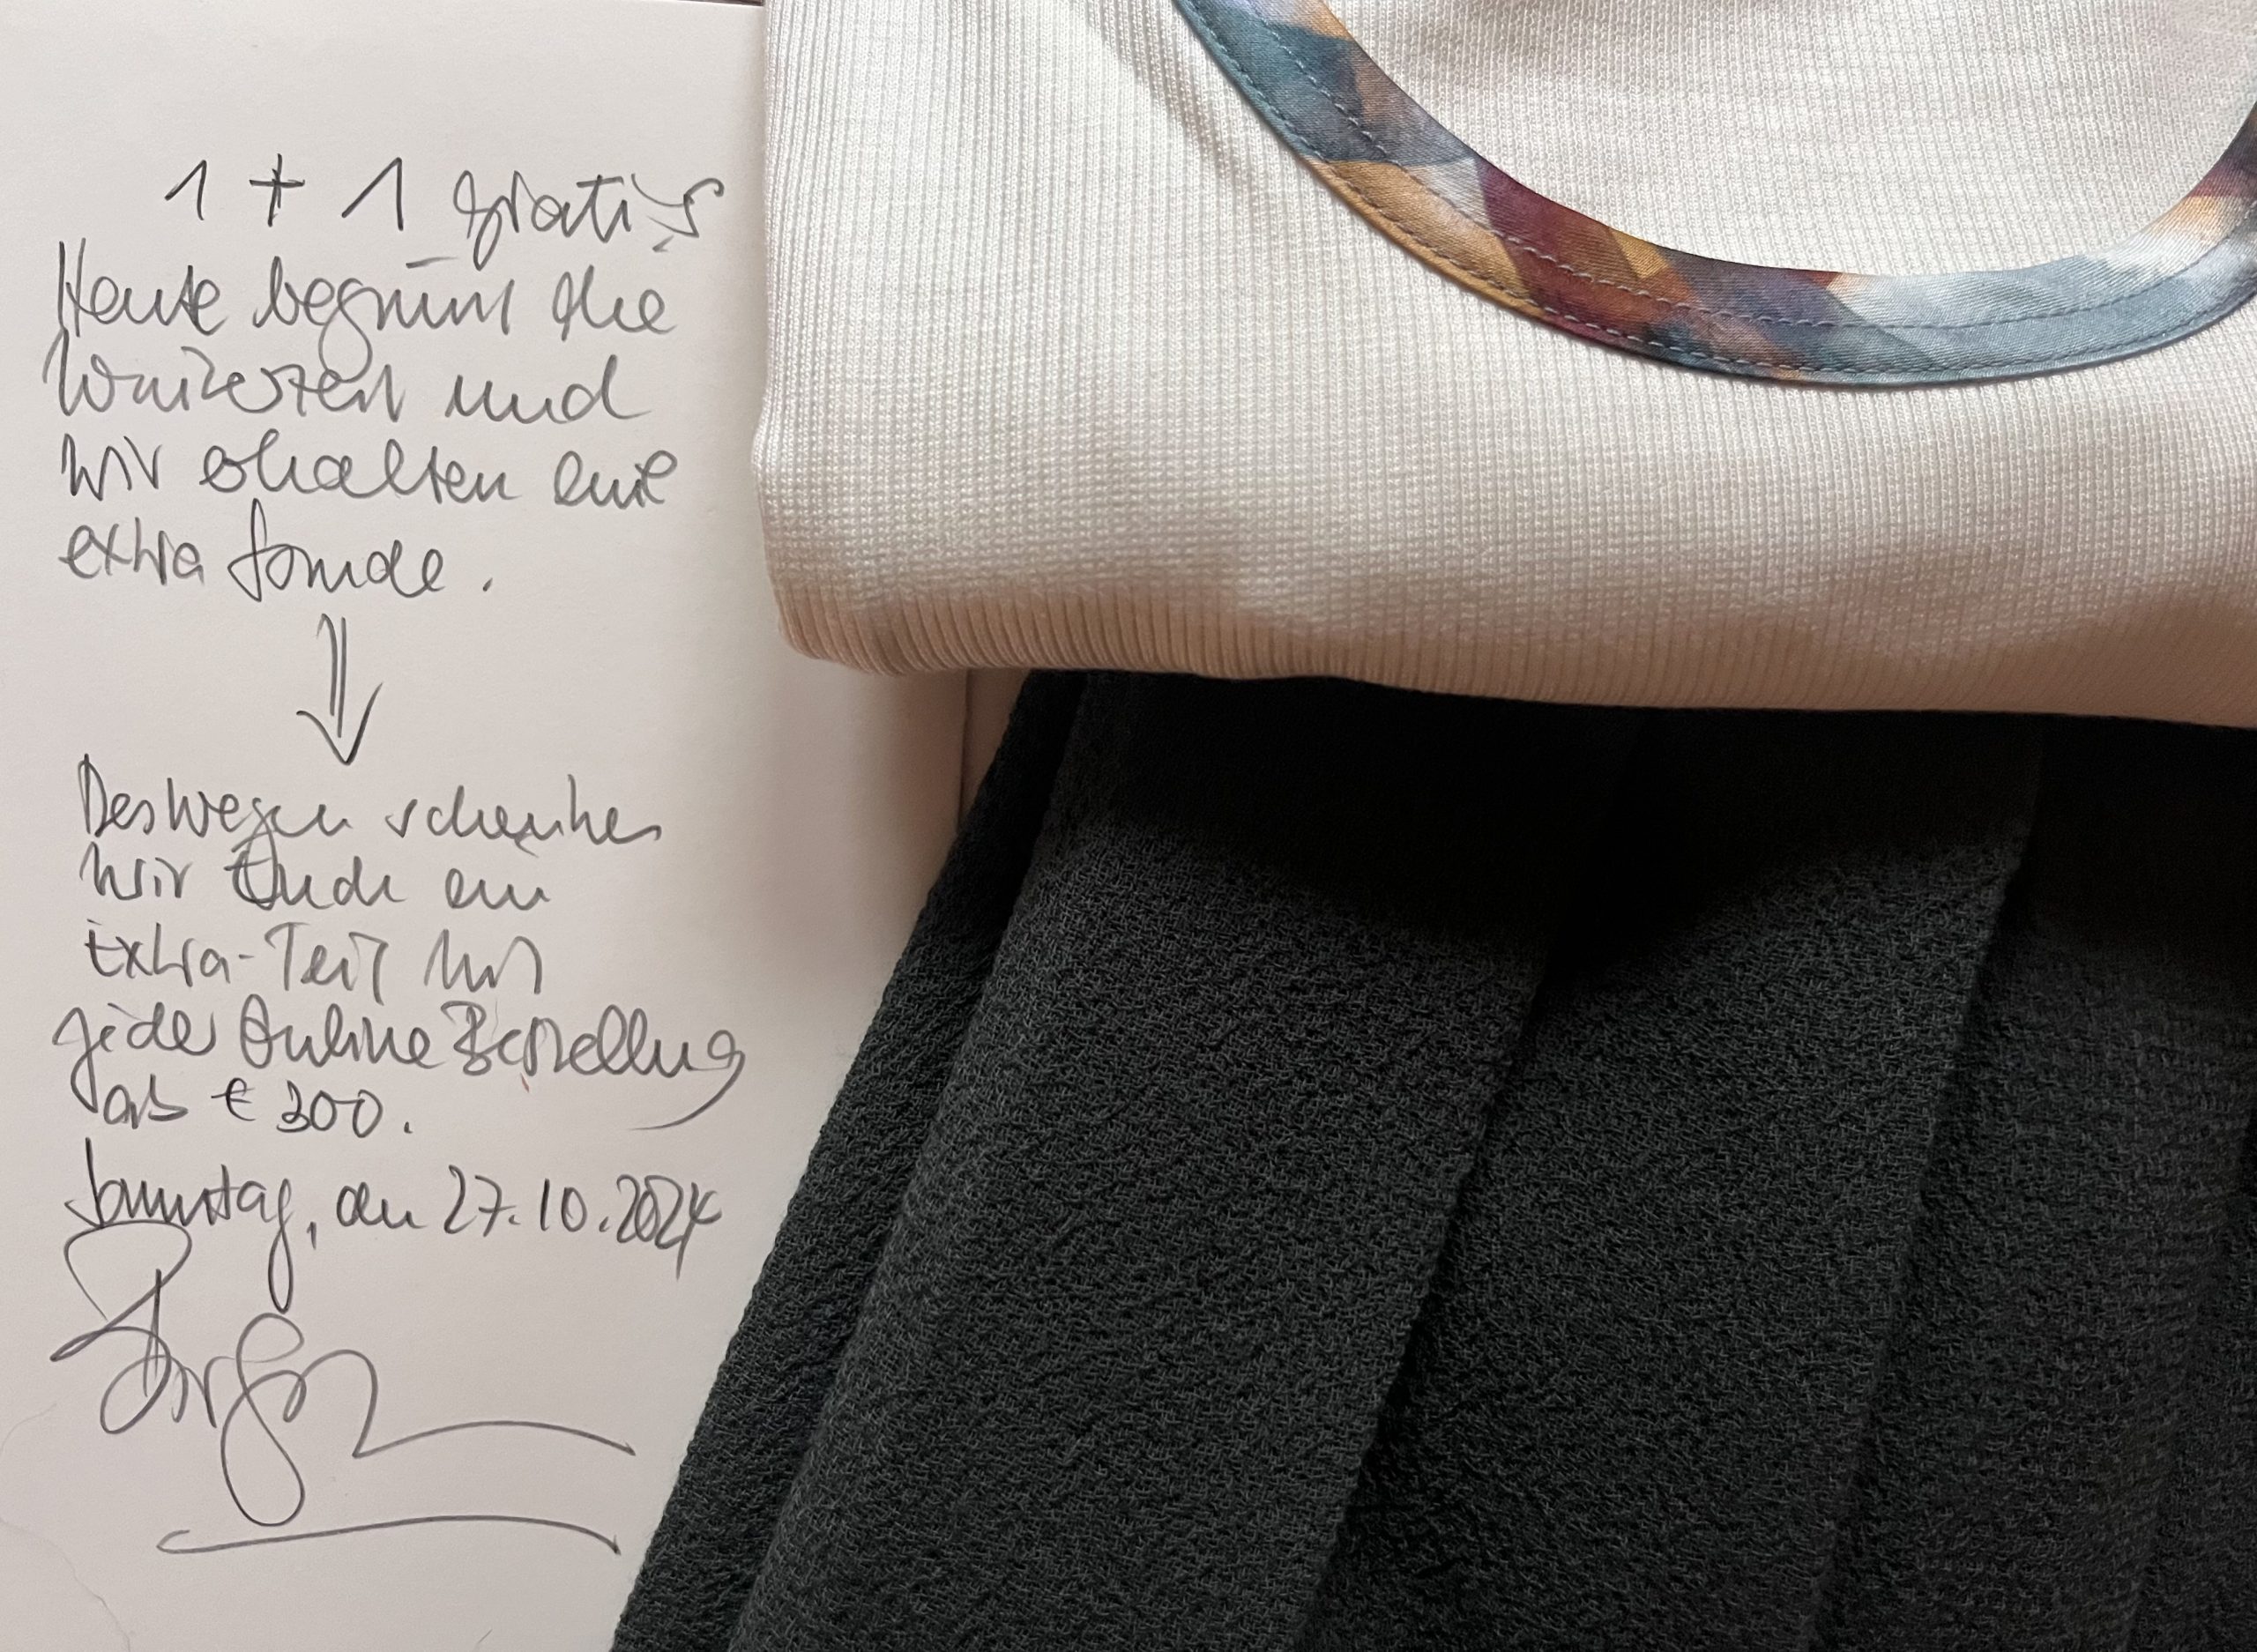 1 + 1 gratis
Heute beginnt die
Winterzeit und
wir erhalten eine
extra Stunde.
Deswegen schenken
wir Euch ein
Extra-Teil mit
jeder Online Bestellung
ab € 300.
Sonntag, den 27.10.2024